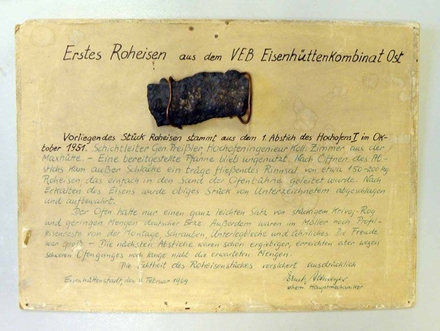 Erstes Roheisen aus dem VEB Eisenhüttenkombinat Ost
Vorliegendes Stück Roheisen stammt aus dem 1. Abstich des Hochofens I im Ok-
tober 1951. Schichtleiter Gen. Hochofeningenieur Koll. Zimmer, aus der
Maxhütte. – Eine bereitgestellte Pfanne blieb ungenutzt. Nach Öffnen des Ab-
stichs kam außer Schlacke ein träge fließendes Rinnsal von etwa 150-200 kg
Roheisen das einfach in den Sand der geleitet wurde. Nach
Erkalten des Eisens wurde obiges Stück von Unterzeichnetem abgeschlagen
und aufbewahrt.
Der Ofen hatte nur einen ganz leichten Satz von
und geringen Mengen Erz. Außerdem waren im Möller noch
von der Montage, Schrauben, Unterlegbleche und ähnliches. Die Freude
war groß. – Die nächsten Abstiche waren schon ergiebiger, erreichten aber wegen
Ofenganges noch lange nicht die erwarteten Mengen.
Die Echtheit des Roheisenstückes versichert ausdrücklich
Eisenhüttenstadt, den Februar